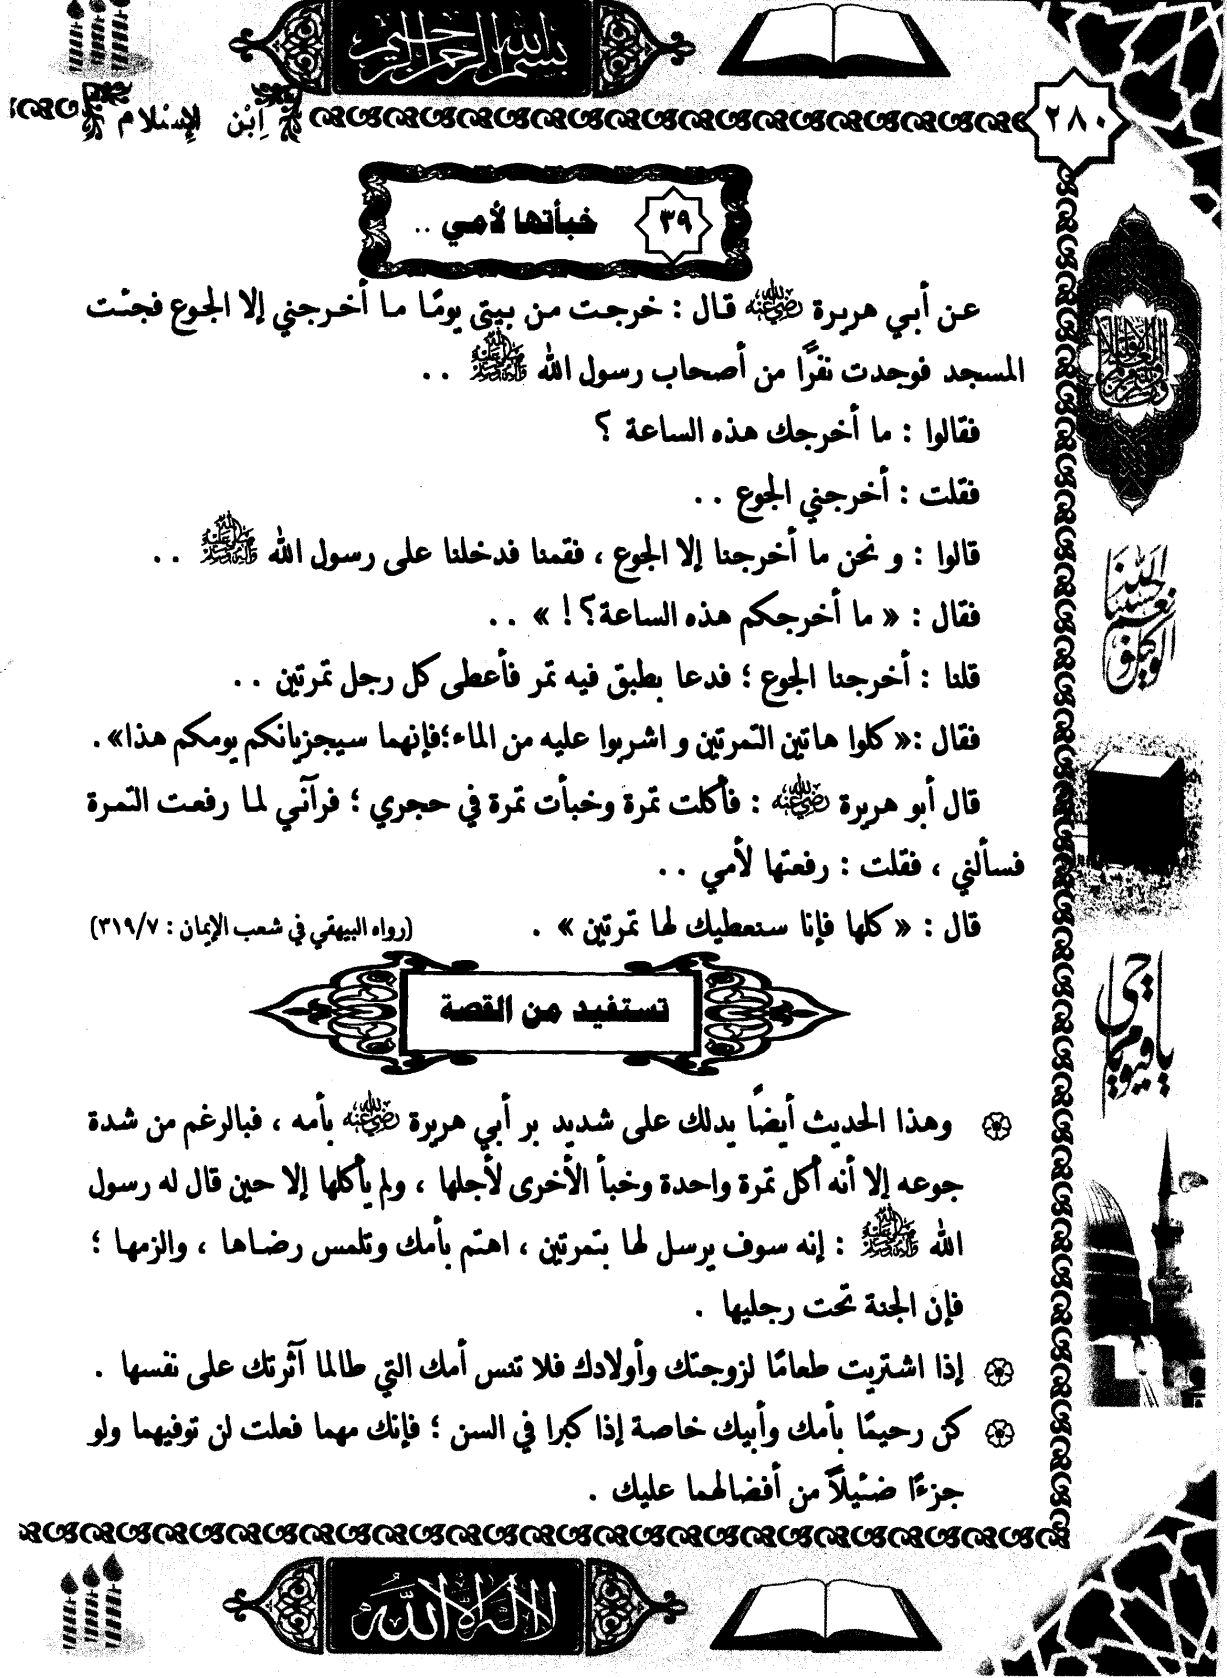 بسم الله الرحمن الرحيم
٢٨٠
اِبْن الإسْلام
٣٩ خبأتها لأمي ..
عن أبي هريرة رضي الله عنه قال : خرجت من بيتي يومًا ما أخرجني إلا الجوع فجئت
المسجد فوجدت نفرًا من أصحاب رسول الله ﷺ ..
فقالوا : ما أخرجك هذه الساعة ؟
فقلت : أخرجني الجوع ..
قالوا : و نحن ما أخرجنا إلا الجوع ، فقمنا فدخلنا على رسول الله ﷺ ..
فقال : « ما أخرجكم هذه الساعة؟! » ..
قلنا : أخرجنا الجوع ؛ فدعا بطبق فيه تمر فأعطى كل رجل تمرتين ..
فقال :« كلوا هاتين التمرتين و اشربوا عليه من الماء؛فإنهما سيجزيانكم يومكم هذا».
قال أبو هريرة رضي الله عنه : فأكلت تمرة وخبأت تمرة في حجري ؛ فرآني لما رفعت التمرة
فسألني ، فقلت : رفعتها لأمي ..
قال : « كلها فإنا سنعطيك لها تمرتين » . (رواه البيهقي في شعب الإيمان : ٣١٩/٧)
تستفيد من القصة
وهذا الحديث أيضاً يدلك على شديد بر أبي هريرة رضي الله عنه بأمه ، فبالرغم من شدة
جوعه إلا أنه أكل تمرة واحدة وخبأ الأخرى لأجلها ، ولم يأكلها إلا حين قال له رسول
الله ﷺ : إنه سوف يرسل لها بتمرتين ، اهتم بأمك وتلمس رضاها ، والزمها ؛
فإن الجنة تحت رجليها .
إذا اشتريت طعامًا لزوجتك وأولادك فلا تنس أمك التي طالما آثرتك على نفسها .
كن رحيمًا بأمك وأبيك خاصة إذا كبرا في السن ؛ فإنك مهما فعلت لن توفيهما ولو
جزءًا ضئيلاً من أفضالهما عليك .
حسبنا الله ونعم الوكيل
يا حي يا قيوم
لا إله إلا الله